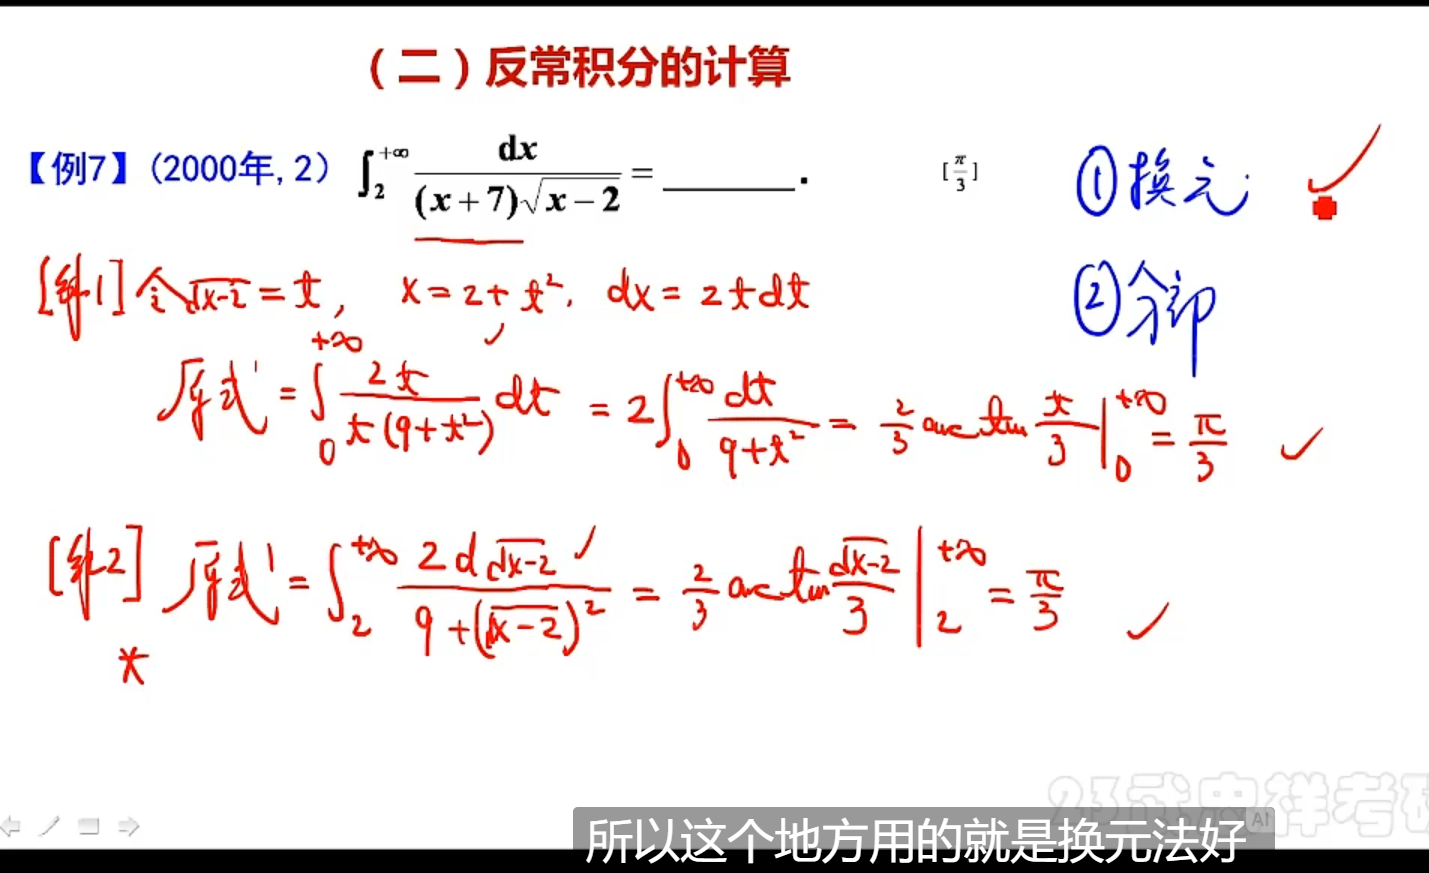 （二）反常积分的计算
【例7】(2000年, 2) ∫₂^{+∞} dx / ((x+7)√(x−2)) = ______.
[π/3]
① 换元
② 分部
[解1] 令 √(x-2) = t, x = 2 + t², dx = 2tdt
原式 = ∫₀^{+∞} 2t / (t(9+t²)) dt = 2∫₀^{+∞} dt / (9+t²) = 2/3 arctan t/3 |₀^{+∞} = π/3
[解2] 原式 = ∫₂^{+∞} 2d√(x-2) / (9+(√(x-2))²) = 2/3 arctan √(x-2)/3 |₂^{+∞} = π/3
23武忠祥考研
AI
所以这个地方用的就是换元法好